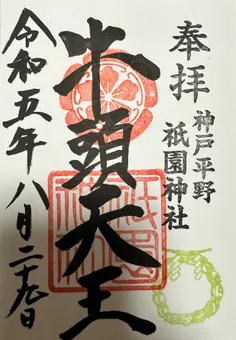 奉拝
神戸平野
祇園神社
牛頭天王
令和五年八月二十九日
祇園神社